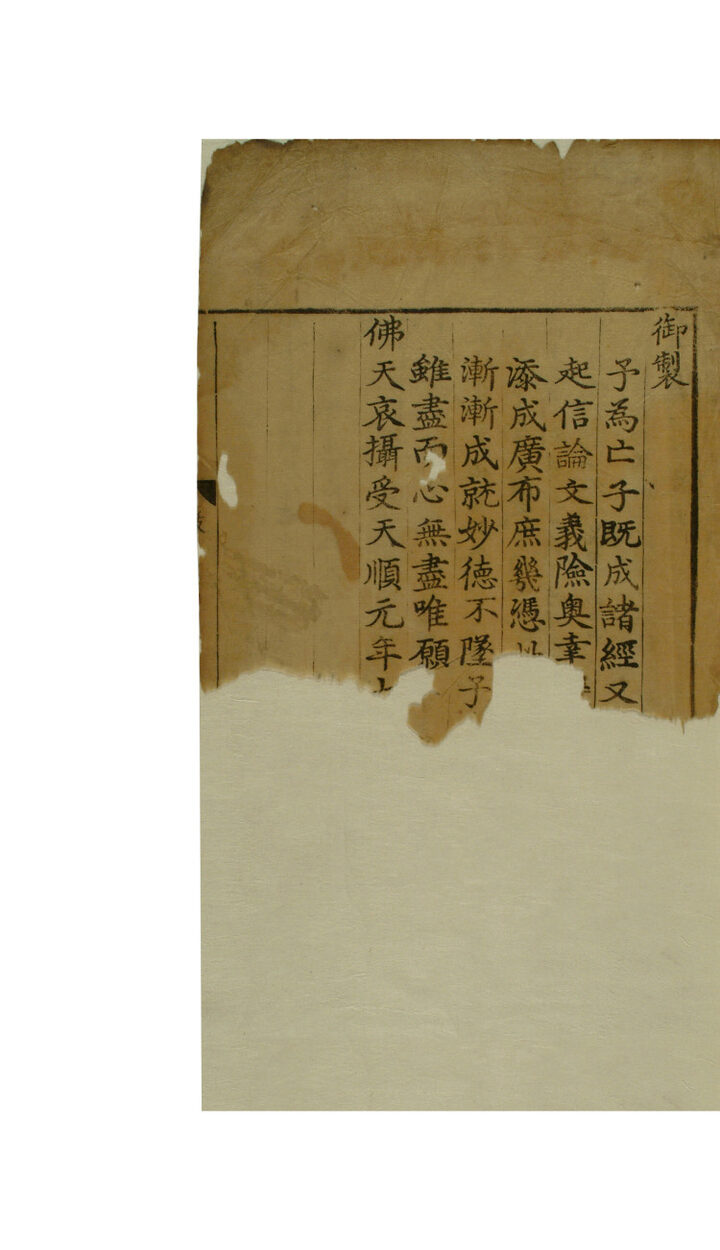 御製
予為亡子既成諸經又
起信論文義險奧幸
添成廣布庶幾憑
漸漸成就妙德不墜予
雖盡而心無盡唯願
佛天哀攝受天順元年